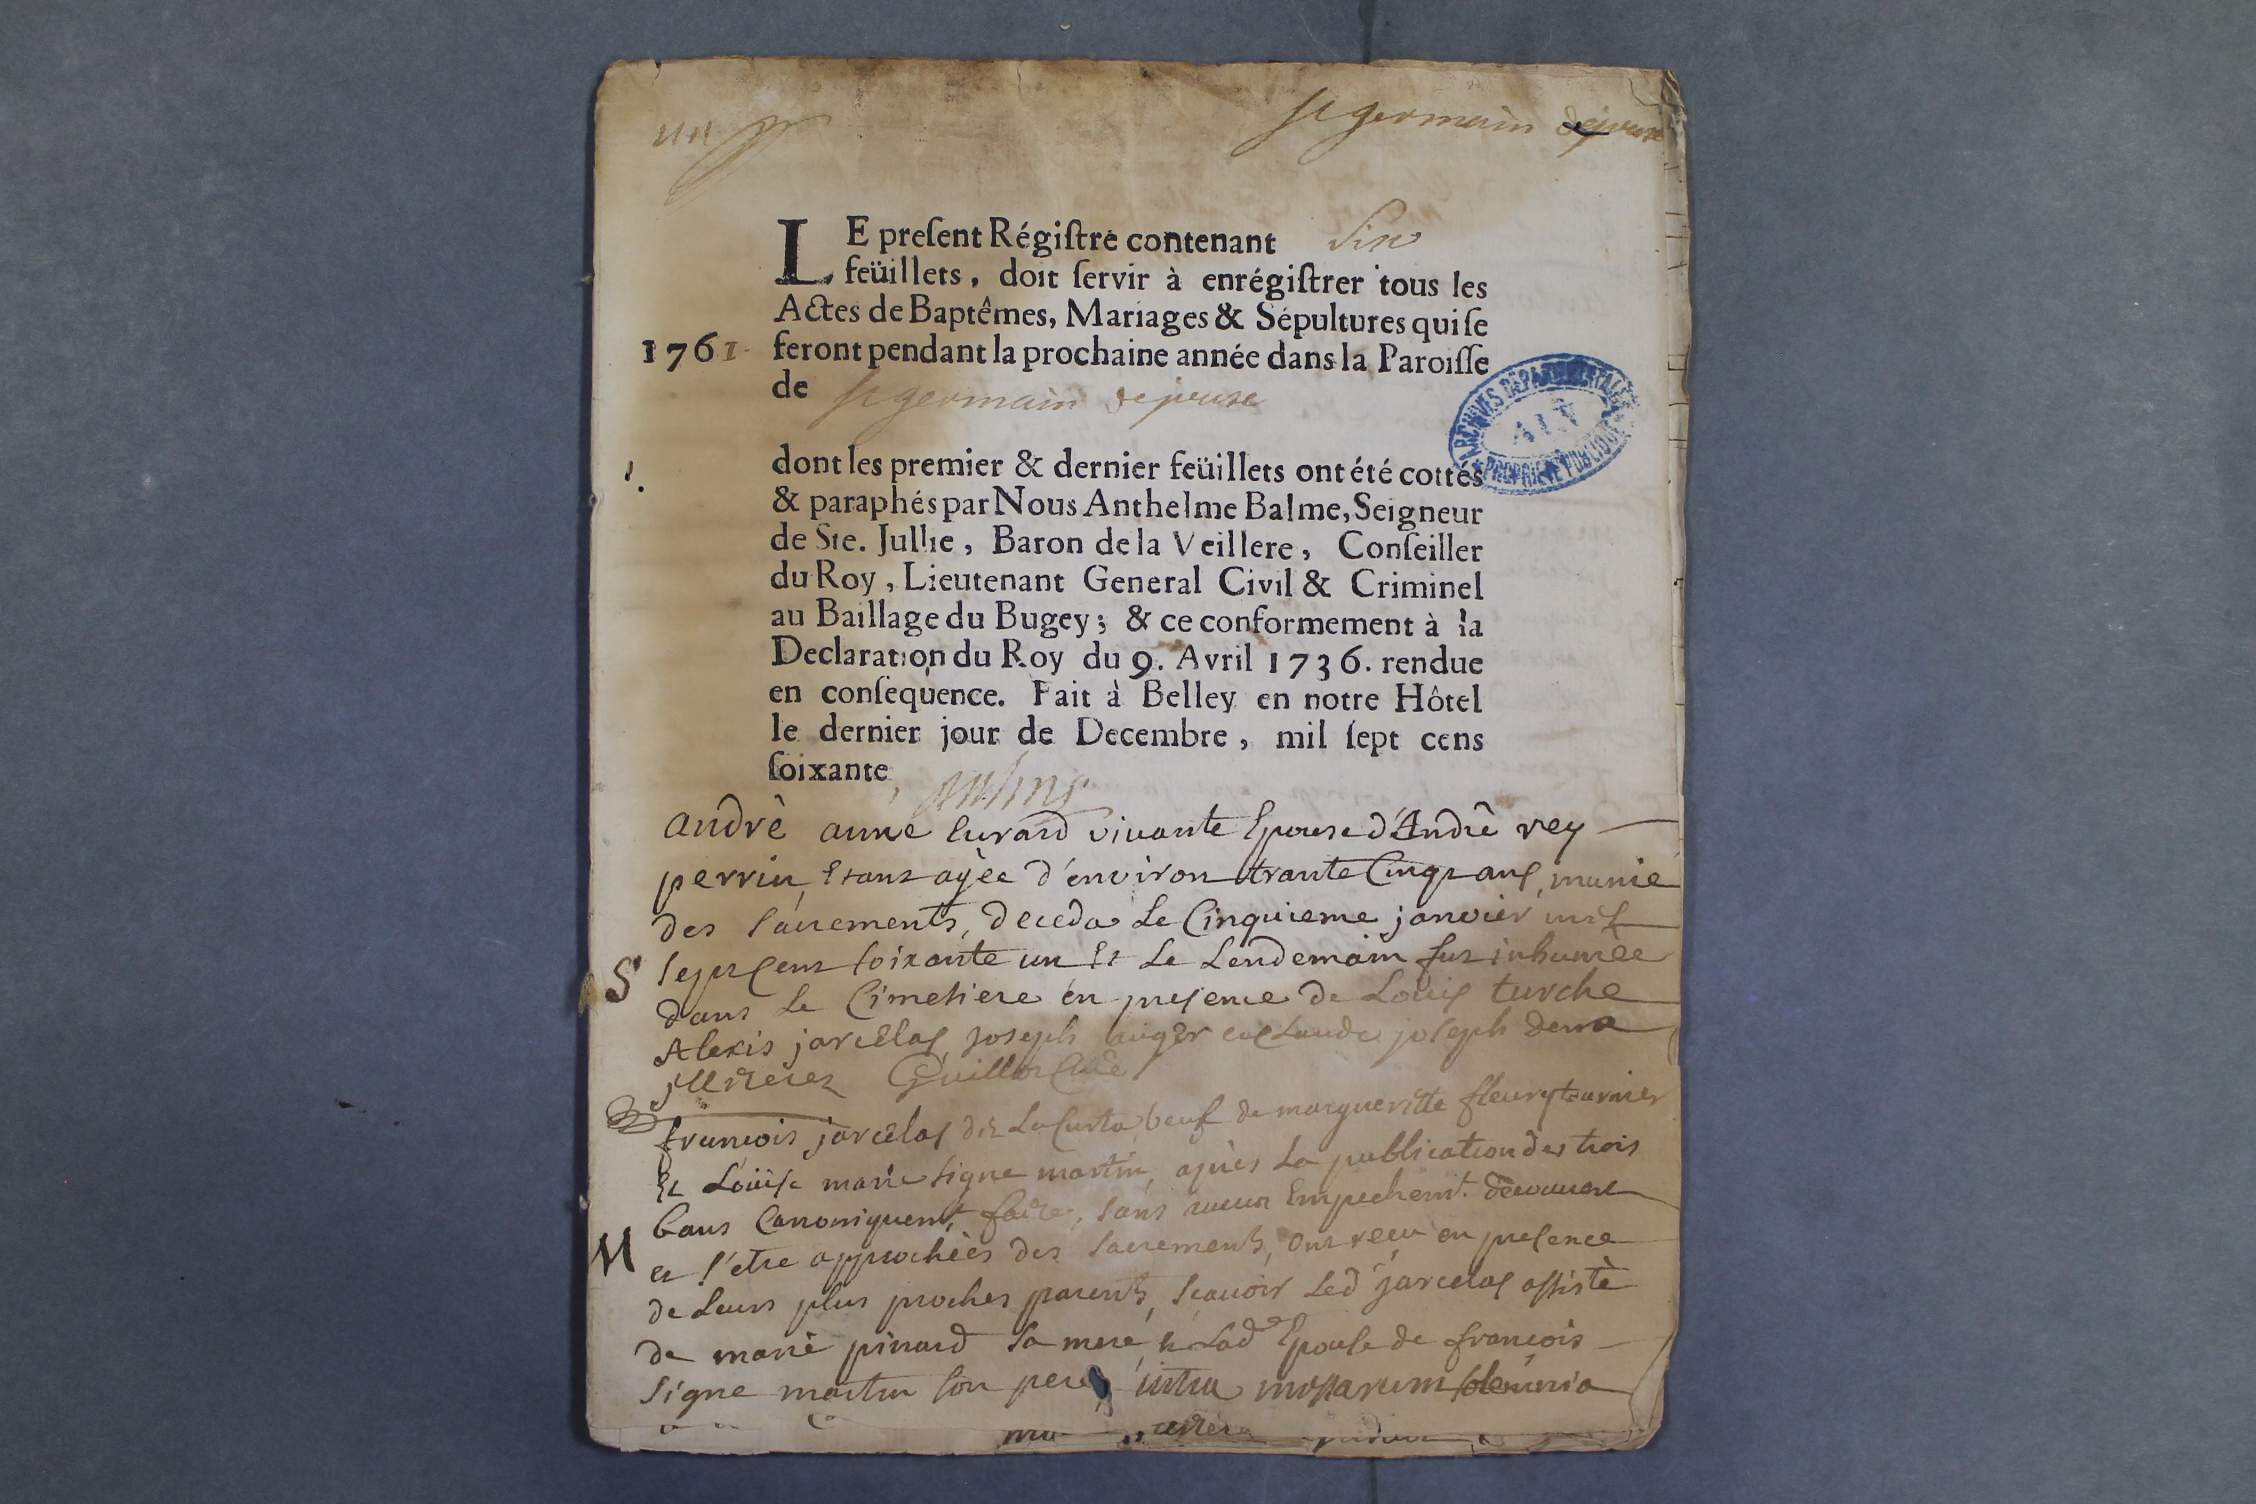 un
st germain dejoux
LE preſent Régiſtre contenant Six
feüillets, doit ſervir à enrégiſtrer tous les
Actes de Baptêmes, Mariages & Sépultures qui ſe
1761 feront pendant la prochaine année dans la Paroiſſe
de st germain dejoux
ARCHIVES DÉPARTEMENTALES
AIN
PROPRIÉTÉ PUBLIQUE
dont les premier & dernier feüillets ont été cottés
& paraphés par Nous Anthelme Balme, Seigneur
de Ste. Jullie, Baron de la Veillere, Conſeiller
du Roy, Lieutenant General Civil & Criminel
au Baillage du Bugey; & ce conformement à la
Declaration du Roy du 9. Avril 1736. rendue
en conſequence. Fait à Belley en notre Hôtel
le dernier jour de Decembre, mil ſept cens
ſoixante
andrè anne Evrard vivante Epouse d'Andrê rey
perrin, Etant agèe d'environ trante Cinq ans, munie
des sacrements, deceda Le Cinquieme janvier mil
S sept cent soixante un Et Le Lendemain fut inhumèe
dans Le Cimetiere en presence de Louis turche
Alexis jarcelas, joseph auger et claude joseph
jllitterez Guillot Curè
françois jarcelas dit La veuf de margueritte fleury tournier
Et Loüise marie signe martin, après La publication des trois
bans Canoniquemt. faite, sans aucun Empechemt.
M et s'etre approchèes des sacrements, ont reçu en presence
de Leurs plus proches parents, scavoir Led jarcelas assistè
de marie pinard sa mere, & Lade Epouse de françois
signe martin son pere, intra missarum solemnia